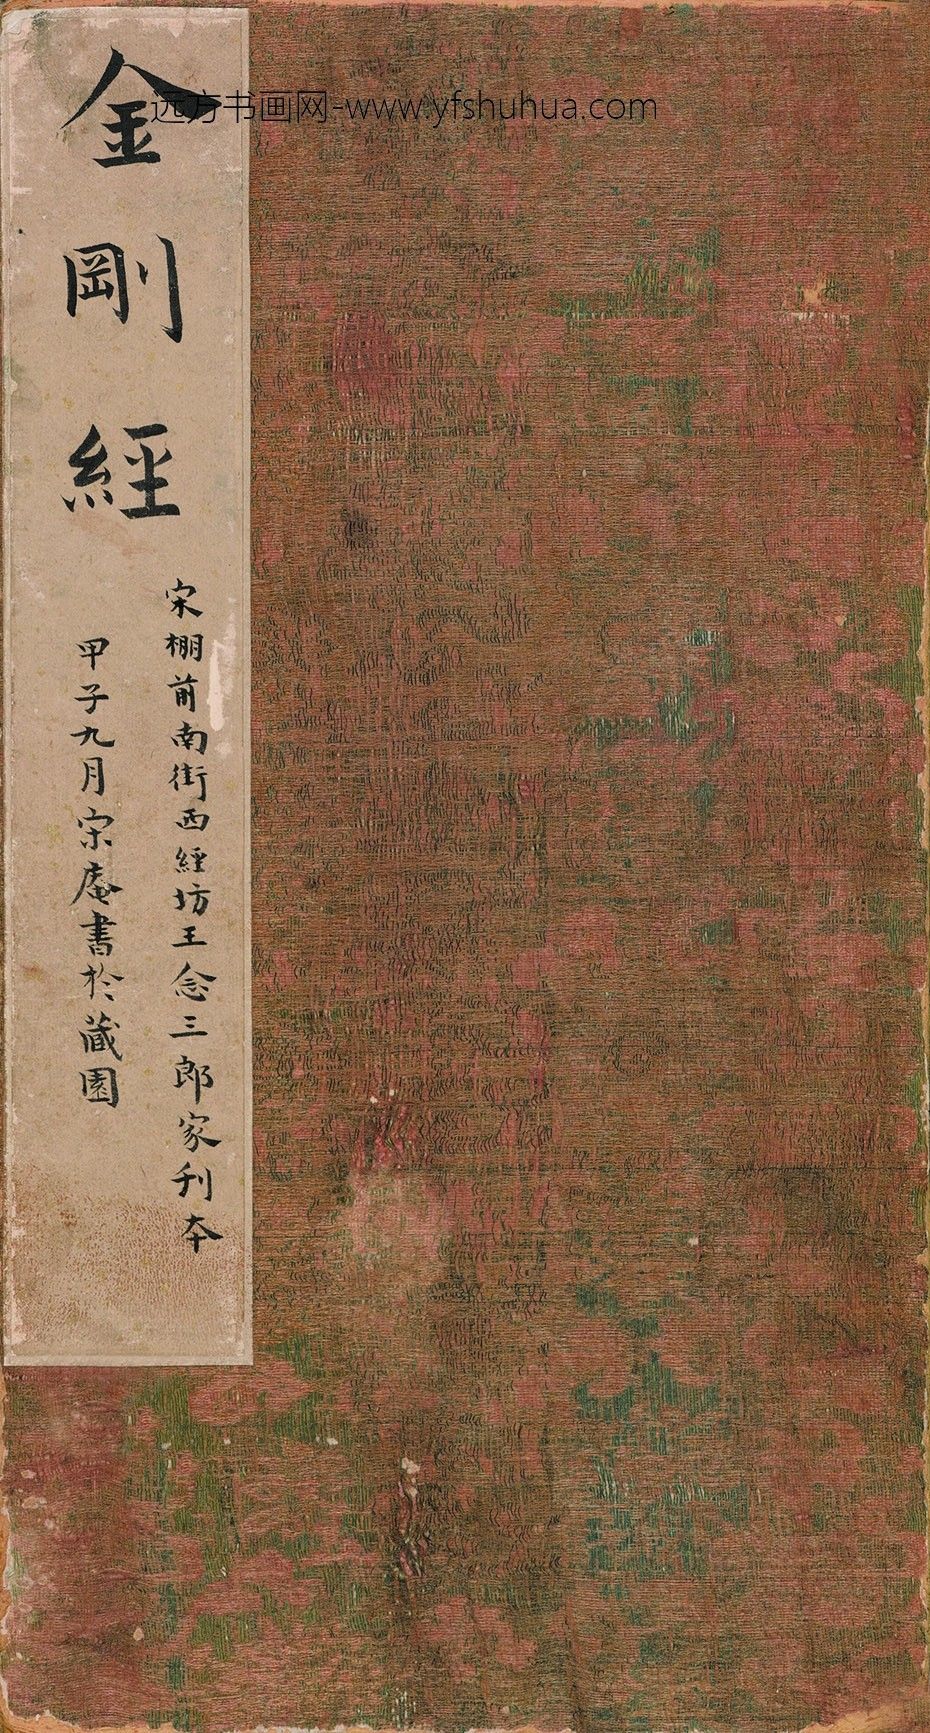 金剛經
宋棚前南街西經坊王念三郎家刊本
甲子九月宋庵書於藏園
远方书画网-www.yfshuhua.com